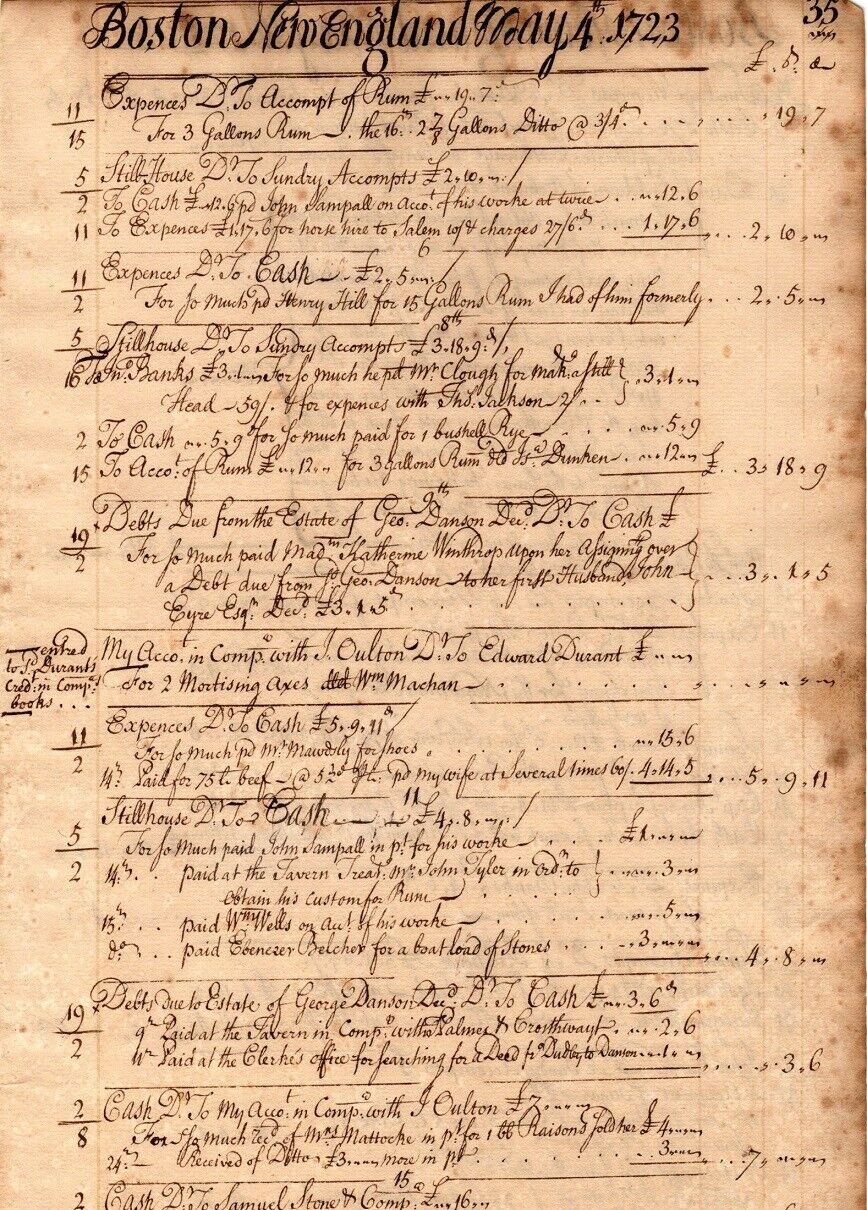 35
Boston New England May 4th. 1723
£ .. s. d
11 Expences Dr. To Accompt of Rum £ „ 19 „ 7d
15 For 3 Gallons Rum . the 16th. 2 7/8 Gallons Ditto @ 3/4d. . . . . . . . 19 „ 7
5 Still House Dr. To Sundry Accompts £ 2 „ 10 „ „ /
2 To Cash £ „ 12 „ 6 pd John Sampall on Acco.t of his worke at twice . . „ 12 „ 6
11 To Expences £1 „ 17 „ 6 for horse hire to Salem w/ & charges 27/6d . . . 1 „ 17 „ 6 . . . 2 „ 10 „ „
6
11 Expences Dr. To Cash £ 2 „ 5 „ „ /
2 For so much pd Henry Hill for 15 Gallons Rum I had of him formerly . . . 2 „ 5 „ „
8th
5 Stillhouse Dr. To Sundry Accompts £ 3 „ 18 „ 9d /
16 To Jno. Banks £ 3 „ 1 „ „ For so much he pd Mr. Clough for mak.g a still } . 3 „ 1 „ „
Head 59/. & for expences with Tho: Jackson 2/ . . }
2 To Cash „ 5 „ 9d for so much paid for 1 bushell Rye . . . . „ 5 „ 9
15 To Acco.t of Rum £ „ 12 „ „ for 3 gallons Rum dld Dunken . . „ 12 „ „ £ . . 3 „ 18 „ 9
9th
19 Debts Due from the Estate of Geo: Danson Decd. Dr. To Cash £
2 For so much paid Madm. Katherine Winthrop upon her Assigning over
a Debt due from sd. Geo: Danson to her first Husband, John } . . 3 „ 1 „ 5
Eyre Esqr. Decd. £3 „ 1 „ 5d . . . . . . . .
entred
to Sd. Durants
Cred: in Comp.a
books . . .
My Acco.t in Comp.a with J. Oulton Dr. To Edward Durant £ „ „
For 2 Mortising Axes dld Wm Machan . . . . . . „ „ „
11 Expences Dr. To Cash £ 5 „ 9 „ 11d /
2 For so much pd Mr. Mawdsly for shoes . . . . . . . „ 15 „ 6
14th. Paid for 75 lb. beef @ pd my wife at Several times 60/. 4 „ 14 „ 5 . . . 5 „ 9 „ 11
11
Stillhouse Dr. To Cash £ 4 „ 8 „ „ /
5 For so Much paid John Sampall in pt. for his worke . . . £ 1 „ „
2 14th. . . paid at the Tavern Treat.g Mr. John Tyler in ordr. to } „ 3 „
obtain his custom for Rum . . . . .
15th. . . paid Wm. Wells on Acct. of his worke . . . . „ 5 „
do. . . paid Ebenezer Belcher for a boat load of Stones . . . 3 „ „ . . . 4 „ 8 „ „
19 Debts due to Estate of George Danson Decd. Dr. To Cash £ „ 3 „ 6d
2 9th Paid at the Tavern in Comp.a with Palmer & Crosthwayt . . „ 2 „ 6
Paid at the Clerke's office for searching for a Deed fr. Dudley to Danson „ 1 „ . . . . 3 „ 6
2 Cash Dr. To My Acco.t in Comp.a with J Oulton £ 7 „ „
8 For so much recd. of Mrs. Mattocke in pt. for 1 bb Raisons sold her £ 4 „ „
24th Received of Ditto £3 „ „ more in pt. . . . . . . 3 „ „ . . . 7 „ „
15
2 Cash Dr. To Samuel Stone & Comp.a £ „ 16 „ „